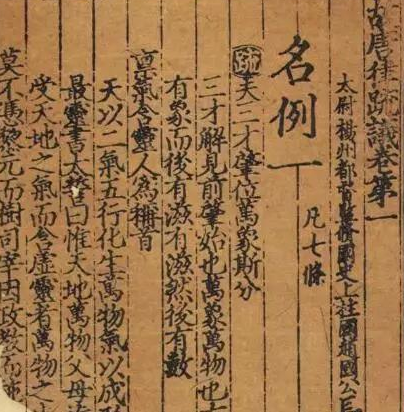 故唐律疏議卷第一
太尉揚州都督監修國史上柱國趙國公長
名例一
凡七條
疏夫三才肇位萬象斯分
三才解見前肇始也萬象萬物也
有象而後有滋有滋然後有數
稟氣含靈人為稱首
天以二氣五行化生萬物氣以成形
最靈書太誓曰惟天地萬物父母
受天地之氣而含虛靈者萬物之
莫不馮黎元而樹司宰因政教而